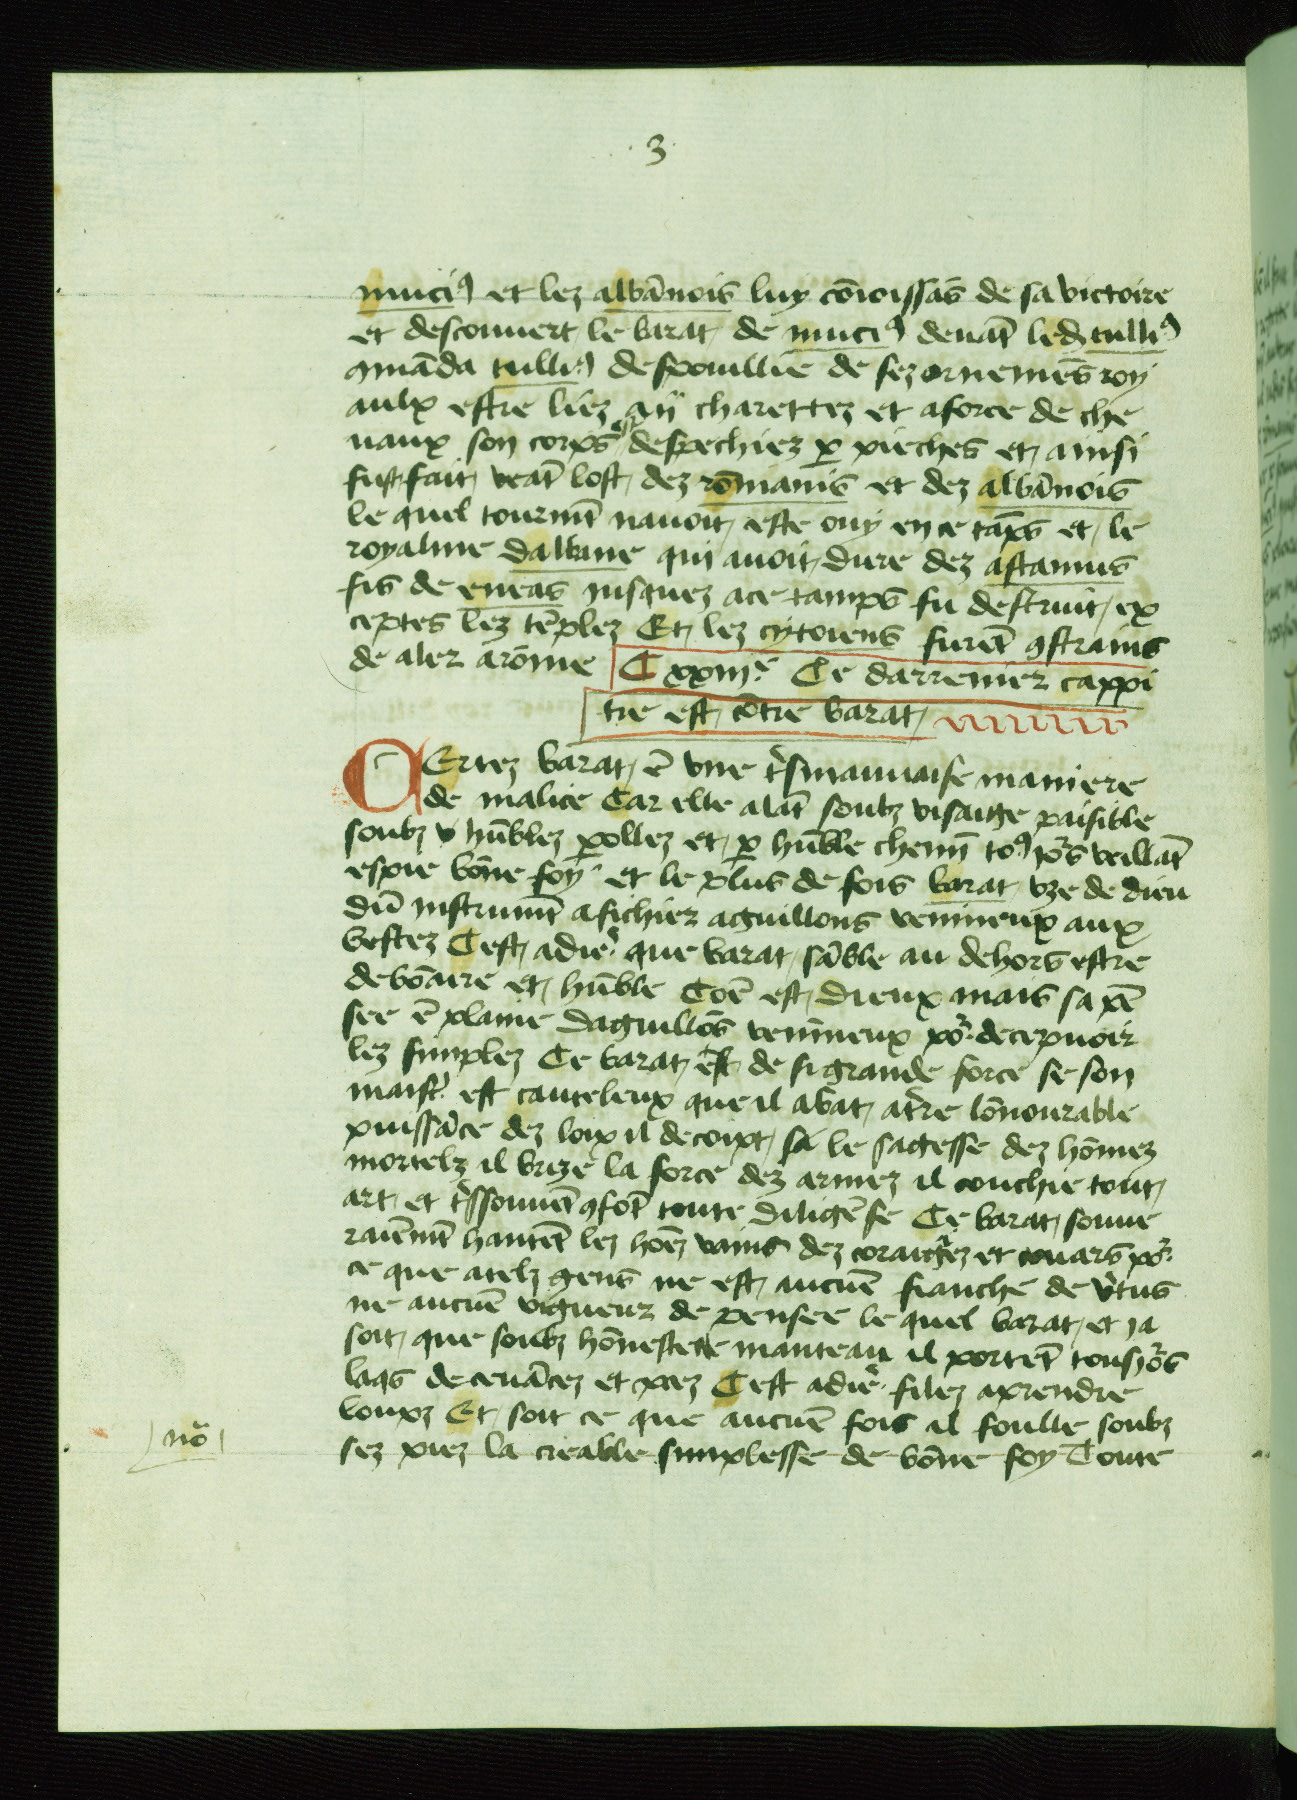 3
muciꝰ et lez albānois luy cōnoissās de sa victoire
et descouuert le barat de muciꝰ deuāt led tulliꝰ
ꝯmāda tulliꝰ despouillie de sez ornemēs roy
aulx estre liez a ij charettez et a force de che
uaux son corps despechiez ꝑ pieches et ainsi
fust fait veāt lost dez rōmanis et dez albānois
le quel tourmt̄ nauoit este ouy en ce tāps et le
royalme dalbane qui auoit dure dez astanius
fis de eneas iusquez a ce tamps fu destruit ex
ceptes lez tēplez Et lez cytoiens furēt ꝯstrains
de aler a rōme C xxiije Ce darrenier cappi
tre est cōtre barat
CErtez barat ē vne tˢmauuaise maniere
de malice Car elle alāt soubz visaige paisible
soubz hūblez ꝑollez et ꝑ hūble chemī toꝰ ioˢ veillāt
espie bōne foy et le plus de fois barat vze de dieu
dū instrumt̄ a fichier aguillons venimeux aux
bestez Cest a dire que barat sāble au dehors estre
debōaire et hūble Cōe est dieux mais sa pē
see ē plaine daguillōs venimeux poʳ decepuoir
lez simplez Ce barat est de si grande force se son
maistʳ est cauteleux que il abat a tʳre lōnourable
puissāce dez loix il decoipt le sagesse dez hōmez
mortelz il brize la force dez armez il couchie tout
art et tˢsouuēt ꝯfōt toute diligēse Ce barat souue
rainemt̄ hantēt lez hōez vains dez coraigez et couars poʳ
ce que a telz gens ne est aucūe fianche de vˢtus
ne aucūe vigueur de pensee le quel barat et ia
soit que soubz hōnestete manteau il portēt tousiours
laqs deceuācez et rez Cest a dire filez a prendre
loups Et soit ce que aucūe fois il foulle soubz
sez piez la creable simplesse de bōne foy Toute
nō